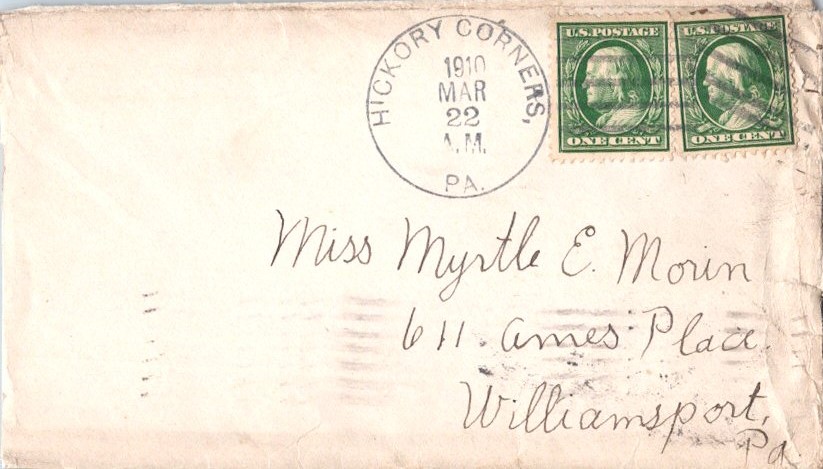 HICKORY CORNERS,
1910
MAR
22
A.M.
PA.
U.S. POSTAGE
ONE CENT
U.S. POSTAGE
ONE CENT
Miss Myrtle E. Morin
611. Ames Place.
Williamsport,
Pa